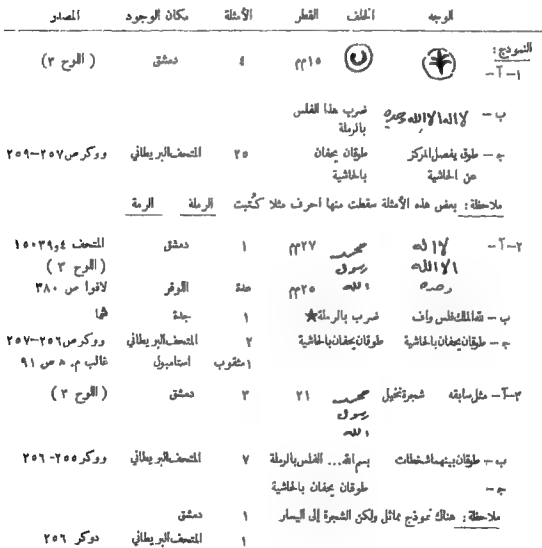 الوجه الخلف القطر الأمثلة مكان الوجود المصدر
النموذج:
١-آ- ١٥مم ٤ دمشق (اللوح ٣)
ب- لا اله الا الله وحده ضرب هذا الفلس
بالرملة
ج- طوق يفصل المركز طوقان يحفان ٢٥ المتحف البريطاني ووكر ص ٢٥٧-٢٥٩
عن الحاشية بالحاشية
ملاحظة: بعض هذه الأمثلة سقطت منها احرف مثلا كُتبت الرملة الرمة
٢-آ- لا اله محمد ٢٧مم ١ دمشق المتحف ٤و١٥٠٣٩
الا الله رسول (اللوح ٣)
وحده الله ٢٥مم عدة اللوفر لافوا ص ٣٨٠
ب- لله الملك فلس واف ضرب بالرملة★ ١ جدة شما
ج- طوقان يحفان بالحاشية طوقان يحفان بالحاشية ٢ المتحف البريطاني ووكر ص ٢٥٦-٢٥٧
١ مثقوب استامبول غالب م. ٨ ص ٩١
٣-آ- مثل سابقه شجرة نخيل محمد ٢١ ٣ دمشق (اللوح ٣)
رسول
الله
ب- طوقان بينهما شحطات بسم الله... الفلس بالرملة ٧ المتحف البريطاني ووكر ٢٥٥-٢٥٦
ج- طوقان يحفان بالحاشية
ملاحظة: هناك نموذج مماثل ولكن الشجرة إلى اليسار ١ دمشق
١ المتحف البريطاني دوكر ٢٥٦